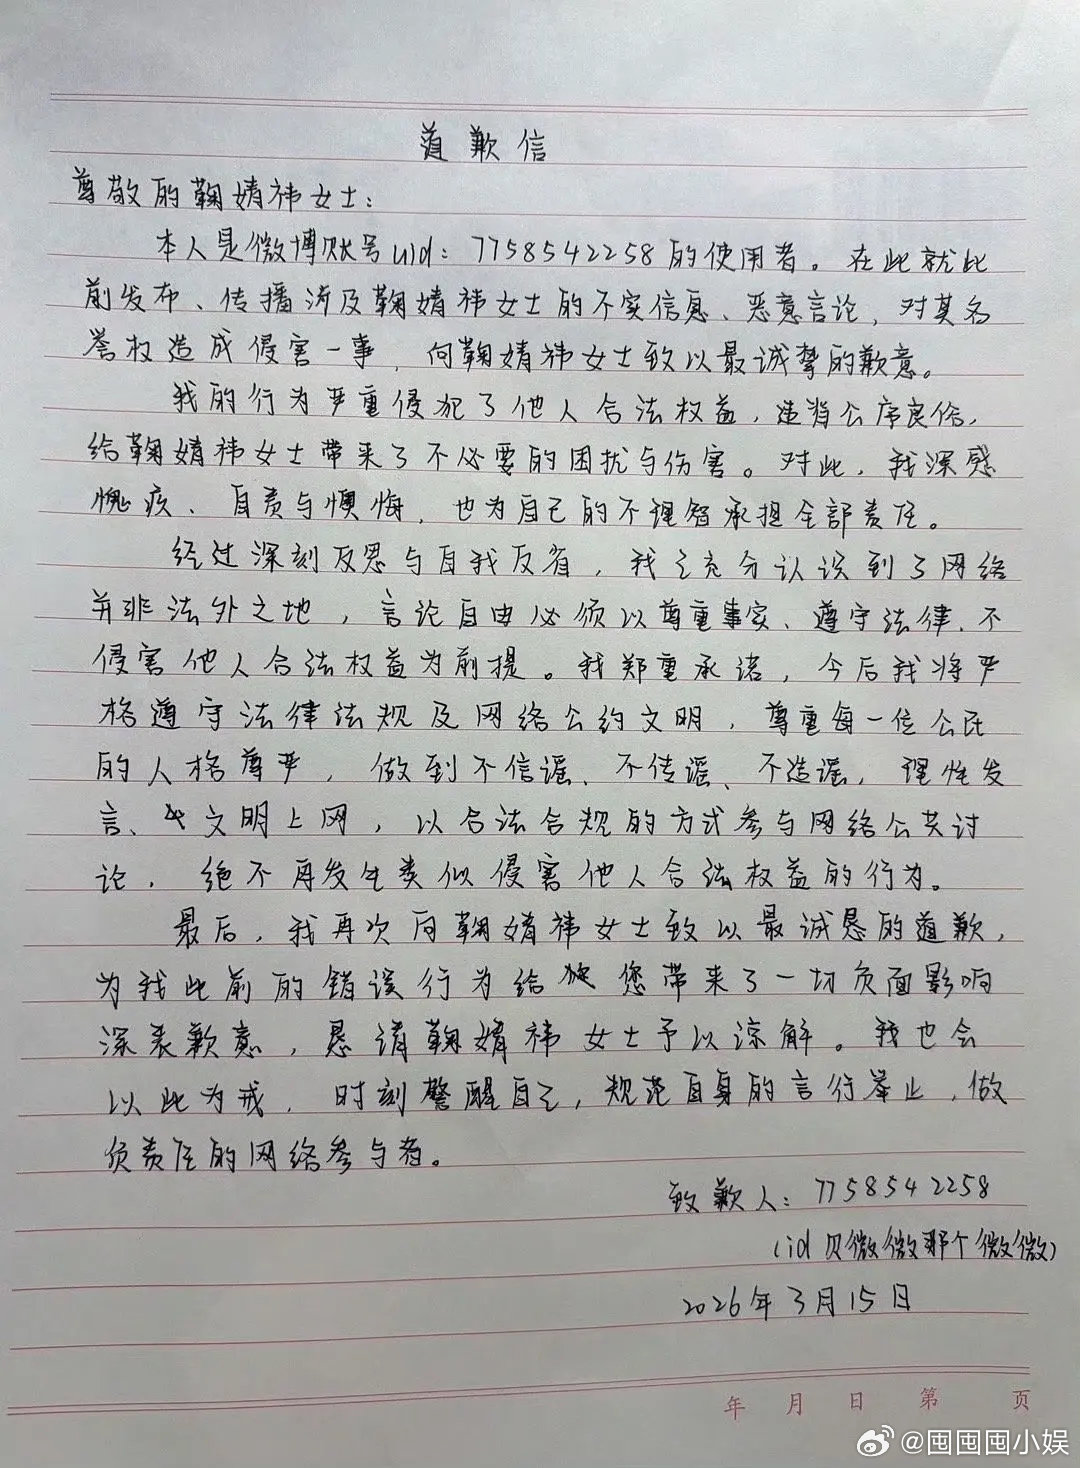 道歉信
尊敬的鞠婧祎女士：
本人是微博账号uid：7758542258的使用者。在此就此
前发布、传播涉及鞠婧祎女士的不实信息、恶意言论，对其名
誉权造成侵害一事，向鞠婧祎女士致以最诚挚的歉意。
我的行为严重侵犯了他人合法权益，违背公序良俗，
给鞠婧祎女士带来了不必要的困扰与伤害。对此，我深感
愧疚、自责与懊悔，也为自己的不理智承担全部责任。
经过深刻反思与自我反省，我已充分认识到了网络
并非法外之地，言论自由必须以尊重事实、遵守法律、不
侵害他人合法权益为前提。我郑重承诺，今后我将严
格遵守法律法规及网络公约文明，尊重每一位公民
的人格尊严，做到不信谣、不传谣、不造谣，理性发
言、文明上网，以合法合规的方式参与网络公共讨
论，绝不再发生类似侵害他人合法权益的行为。
最后，我再次向鞠婧祎女士致以最诚恳的道歉，
为我此前的错误行为给您带来了一切负面影响
深表歉意，恳请鞠婧祎女士予以谅解。我也会
以此为戒，时刻警醒自己，规范自身的言行举止，做
负责任的网络参与者。
致歉人：7758542258
（id贝微微那个微微）
2026年3月15日
年 月 日 第 页
@囤囤囤小娱